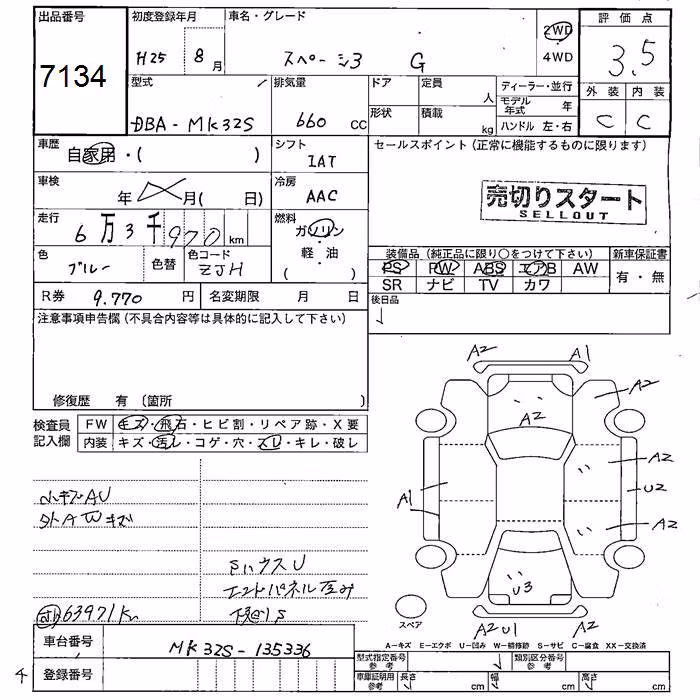 出品番号
7134
初度登録年月
H25 8月
車名・グレード
スペーシア G
2WD
4WD
評価点
3.5
外装 内装
C C
型式
DBA-MK32S
排気量
660 cc
ドア
形状
定員
人
積載
kg
ディーラー・並行
モデル年式 年
ハンドル 左・右
車歴
自家用・( )
シフト
IAT
車検
年 月( 日)
冷房
AAC
走行
6万3千970 km
燃料
ガソリン
軽・油
( )
色
ブルー
色替
色コード
ZJH
R券 9.770 円
名変期限 月 日
セールスポイント(正常に機能するものに限ります)
売切りスタート
SELLOUT
装備品(純正品に限り○をつけて下さい)
新車保証書
PS PW ABS エアB AW
SR ナビ TV カワ
有・無
後日品
注意事項申告欄(不具合内容等は具体的に記入して下さい)
修復歴 有 (箇所 )
検査員記入欄
FW キズ・飛石・ヒビ割・リペア跡・X要
内装 キズ・汚レ・コゲ・穴・スレ・キレ・破レ
小キズAU
外AWキズ
SハウスU
エンドパネル歪み
63971K
A2 A1
A2
A2
A2
A1
U2
A2
U3
A2U1 A2
スペア
A-キズ E-エクボ U-凹み W-補修跡 S-サビ C-腐食 XX-交換済
車台番号 MK32S-135336
登録番号
型式指定番号 参考
類別区分番号 参考
車庫証明用 参考 長さ cm 幅 cm 高さ cm